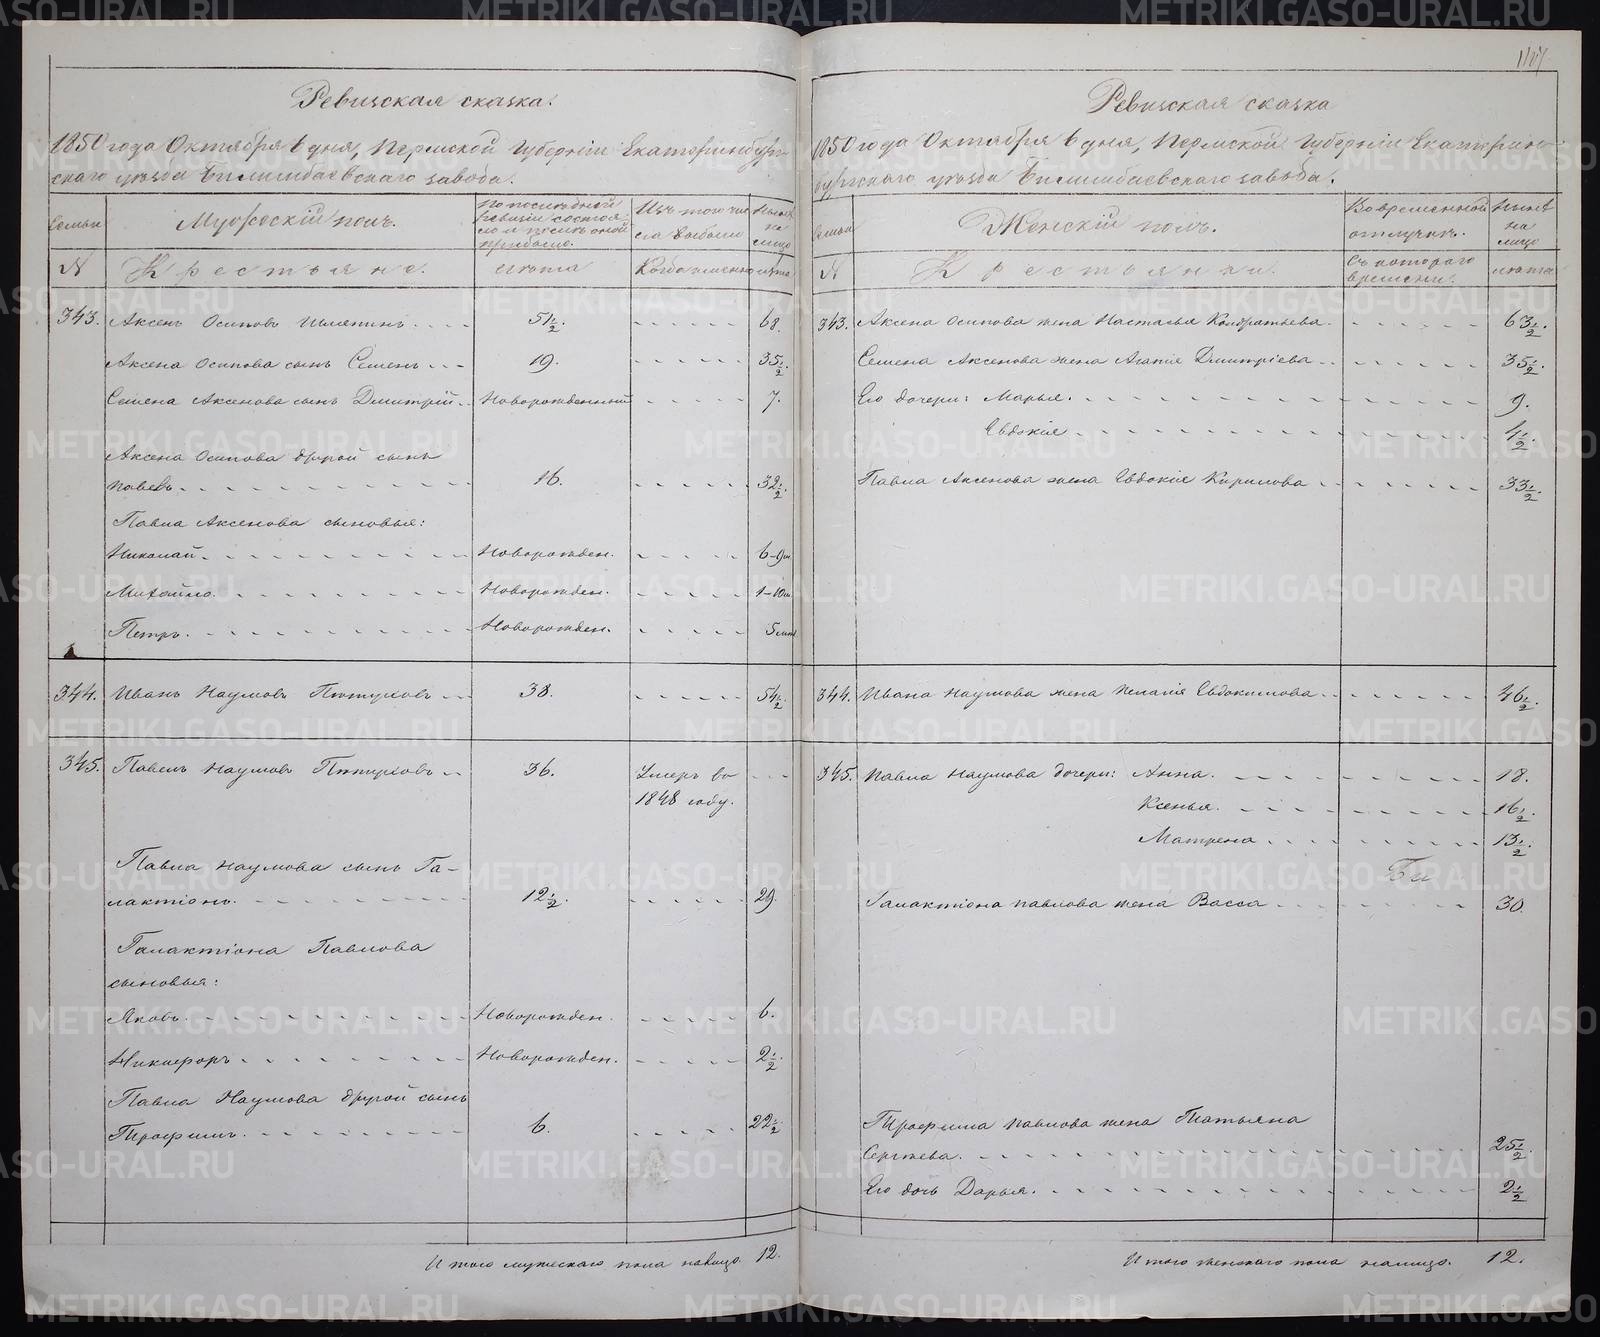 Ревизская сказка.
1850 года Октября 6 дня, Пермской Губерніи Екатеринбург-
скаго уѣзда Билимбаевскаго завода.
Семьи
Мужескій полъ.
По послѣдней ревизіи состояло и послѣ оной прибыло.
Изъ того числа выбыло
Нынѣ на лицо
N
Крестьяне.
лѣта
Когда именно
лѣта
343. Аксенъ Осиповъ 51½. 68.
Аксена Осипова сынъ Семенъ 19. 35½.
Семена Аксенова сынъ Дмитрій Новорожденный 7.
Аксена Осипова другой сынъ
Павелъ 16. 32½.
Павла Аксенова сыновья:
Николай Новорожден. 6-9м
Михайло Новорожден. 1-10м
Петръ Новорожден. 5 мѣс
344. Иванъ Наумовъ Пѣтуховъ 38. 54½.
345. Павелъ Наумовъ Пѣтуховъ 36. Умеръ во
1848 году.
Павла Наумова сынъ Га-
лактіонъ 12½. 29.
Галактіона Павлова
сыновья:
Яковъ Новорожден. 6.
Никифоръ Новорожден. 2½.
Павла Наумова другой сынъ
Трофимъ 6. 22½.
Итого мужескаго пола налицо. 12.
Ревизская сказка
1850 года Октября 6 дня, Пермской Губерніи Екатерин-
бургскаго уѣзда Билимбаевскаго завода.
Семьи
Женскій полъ.
Во временной отлучкѣ.
Нынѣ на лицо
N
Крестьянки.
Съ котораго времени.
лѣта
343. Аксена Осипова жена Настасья Кондратьева 63½.
Семена Аксенова жена Агапія Дмитріева 35½.
Его дочери: Марья. 9.
Евдокія 4½.
Павла Аксенова жена Евдокія Кирилова 33½.
344. Ивана Наумова жена Пелагія Евдокимова 46½.
345. Павла Наумова дочери: Анна. 18.
Ксенья. 16½.
Матрена 13½.
Би
Галактіона Павлова жена Васса 30.
Трофима Павлова жена Татьяна
Сергѣева. 25½.
Его дочь Дарья. 2½
Итого женскаго пола налицо. 12.
METRIKI.GASO-URAL.RU